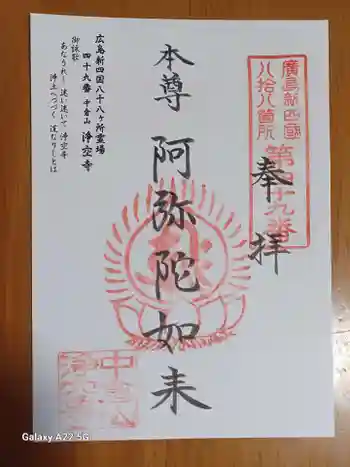 廣島新四國
八拾八箇所
第四十九番
奉拝
本尊
阿弥陀如来
広島新四国八十八ヶ所霊場
四十九番 中倉山 浄空寺
御詠歌
あなうれし 迷い迷いて 浄空寺
浄土へつづく 道なりしとは
Galaxy A22 5G